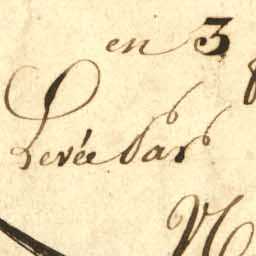 en 3
Levée Par